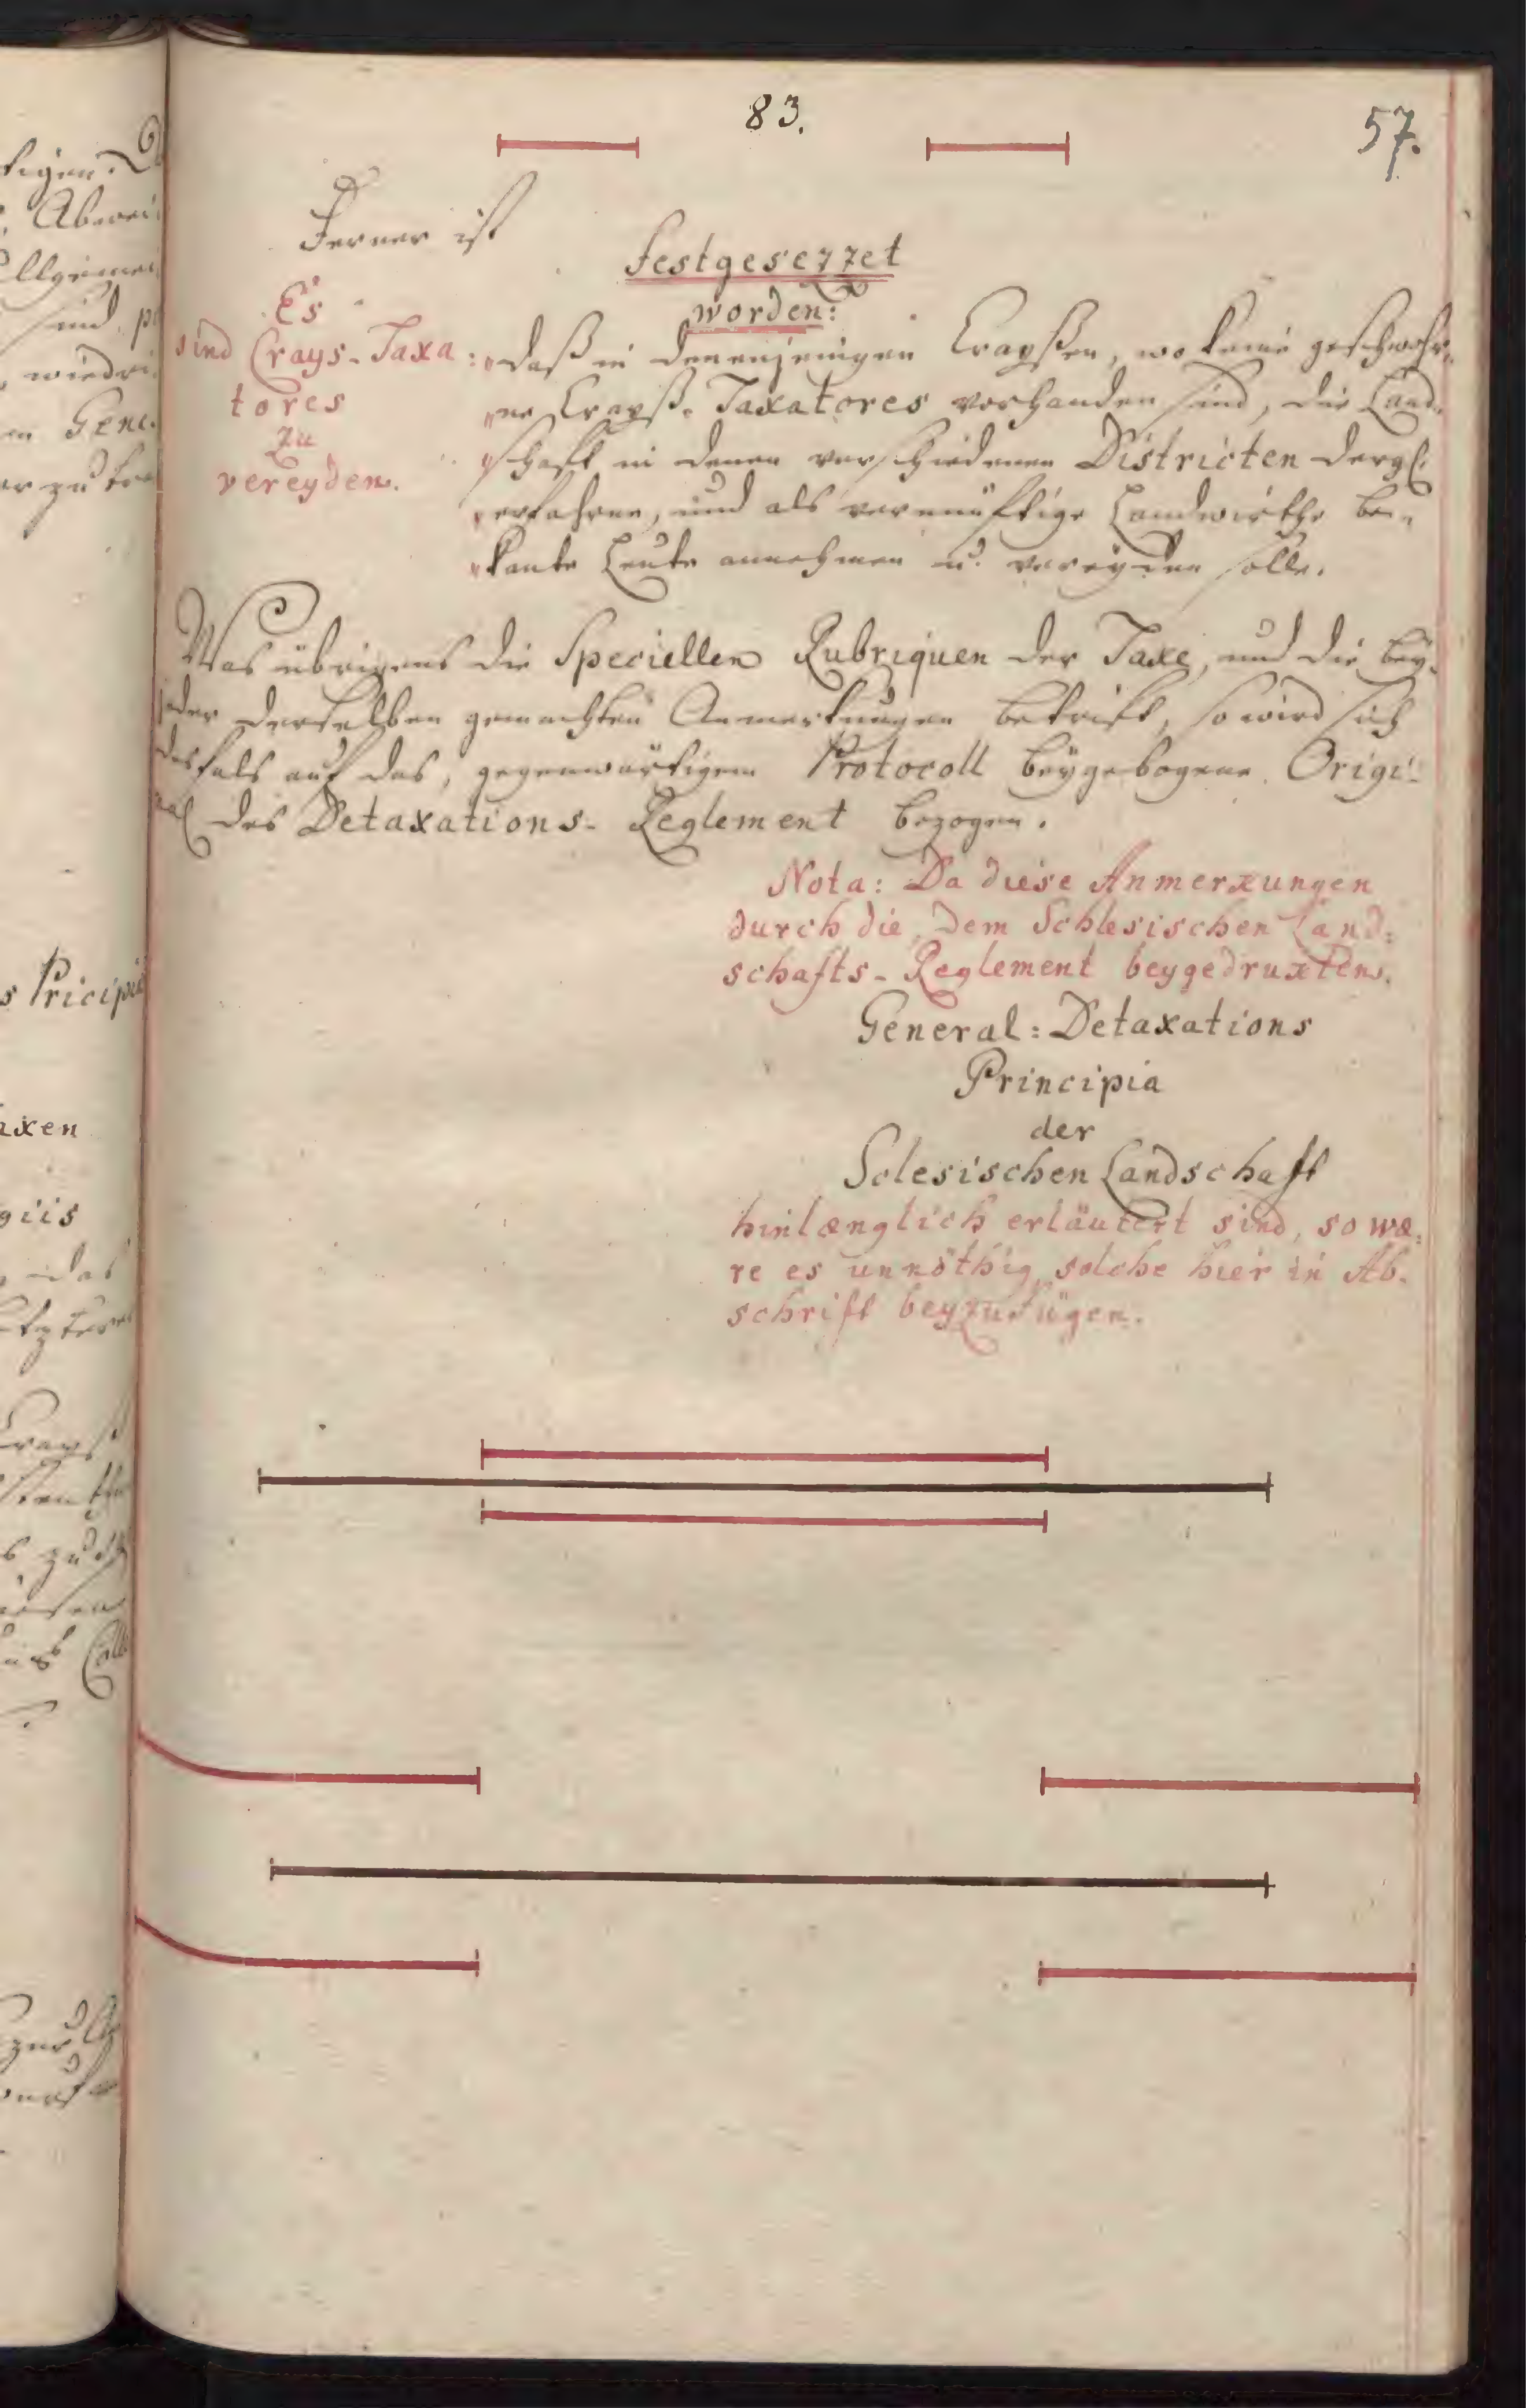 83.
57.
Ferner ist
festgesezzet
worden:
Es
sind Crays-Taxa:
tores
zu
vereyden.
"daß in denenjenigen Crayßen, wo keine geschwohr-
"ne Crayß-Taxatores vorhanden sind, die Land-
"schaft in denen verschiedenen Districten dergl.
"erfahrne, und als vernünftige Landwirthe be-
"kante Leute annehmen u. vereyden solle.
Was übrigens die Speciellen Rubriquen der Taxe, und die bey
jeder derselben gemachten Anmerkungen betrift, so wird sich
desfals auf das, gegenwärtigem Protocoll beygebogene Origi-
nal des Detaxations-Reglement bezogen.
Nota: Da diese Anmerxungen
durch die, dem Schlesischen Land:
schafts-Reglement beygedruxten.
General: Detaxations
Principia
der
Sclesischen Landschaft
hinlænglich erläutert sind, so wæ:
re es unnöthig solche hier in Ab-
schrift beyzufügen.